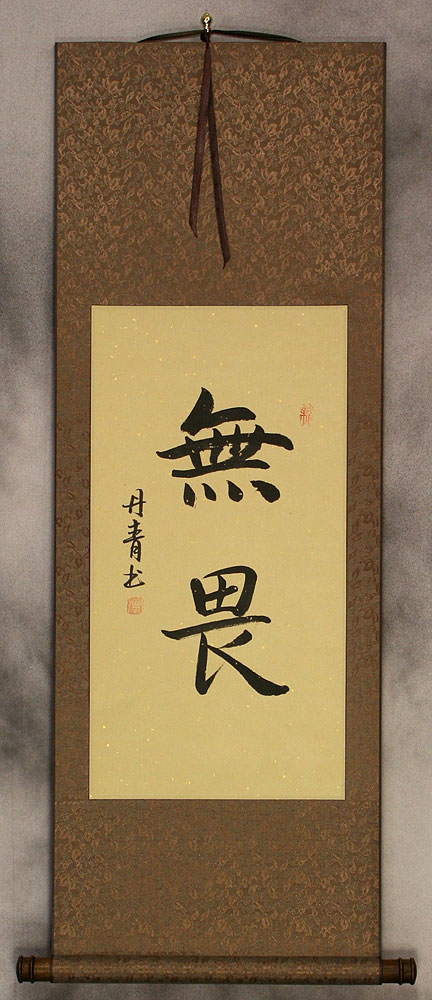 無畏
丹青书